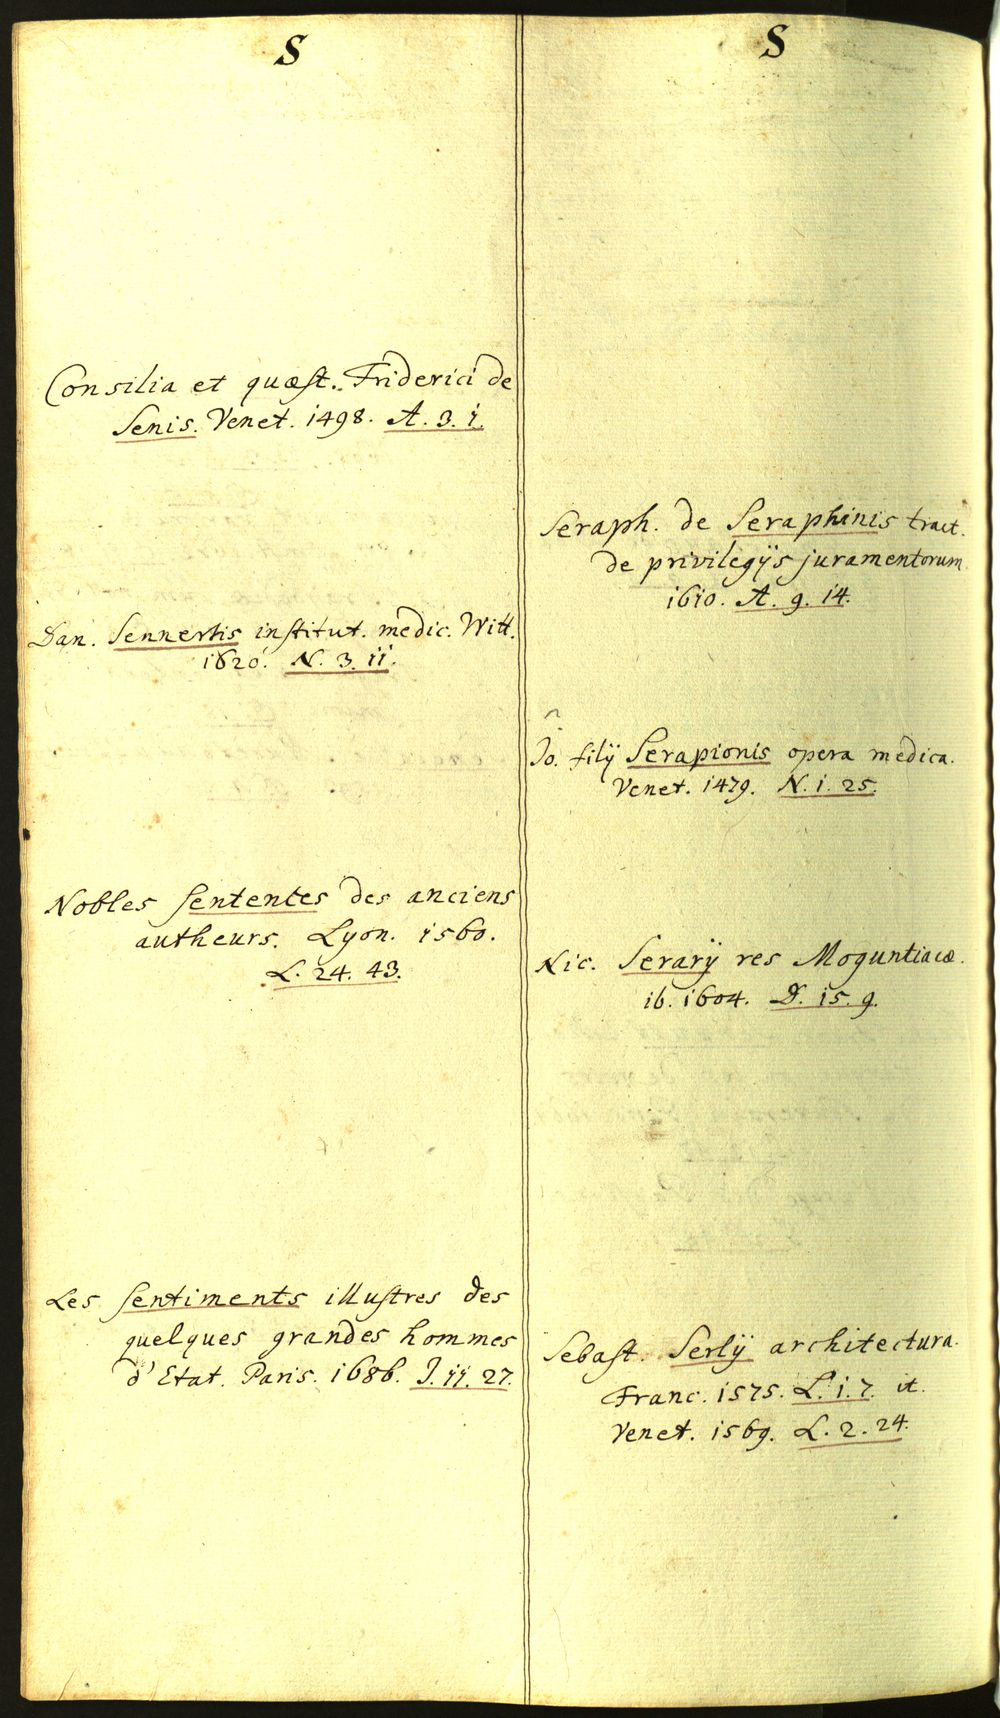 S
Consilia et quæst. Friderici de
Senis. Venet. 1498. A. 3. 1.
Dan. Sennertis institut. medic. Witt.
1620. N. 3. 11.
Nobles sentences des anciens
autheurs. Lyon. 1560.
L. 24. 43.
Les sentiments illustres des
quelques grandes hommes
d'Etat. Paris. 1686. J. 11. 27.
S
Seraph. de Seraphinis tract.
de privilegijs juramentorum
1610. A. 9. 14.
Jo. filij Serapionis opera medica.
Venet. 1479. N. 1. 25.
Nic. Serarij res Moguntiacæ.
ib. 1604. D. 15. 9.
Sebast. Serlij architectura.
Franc. 1575. L. 1. 7. it.
Venet. 1569. L. 2. 24.